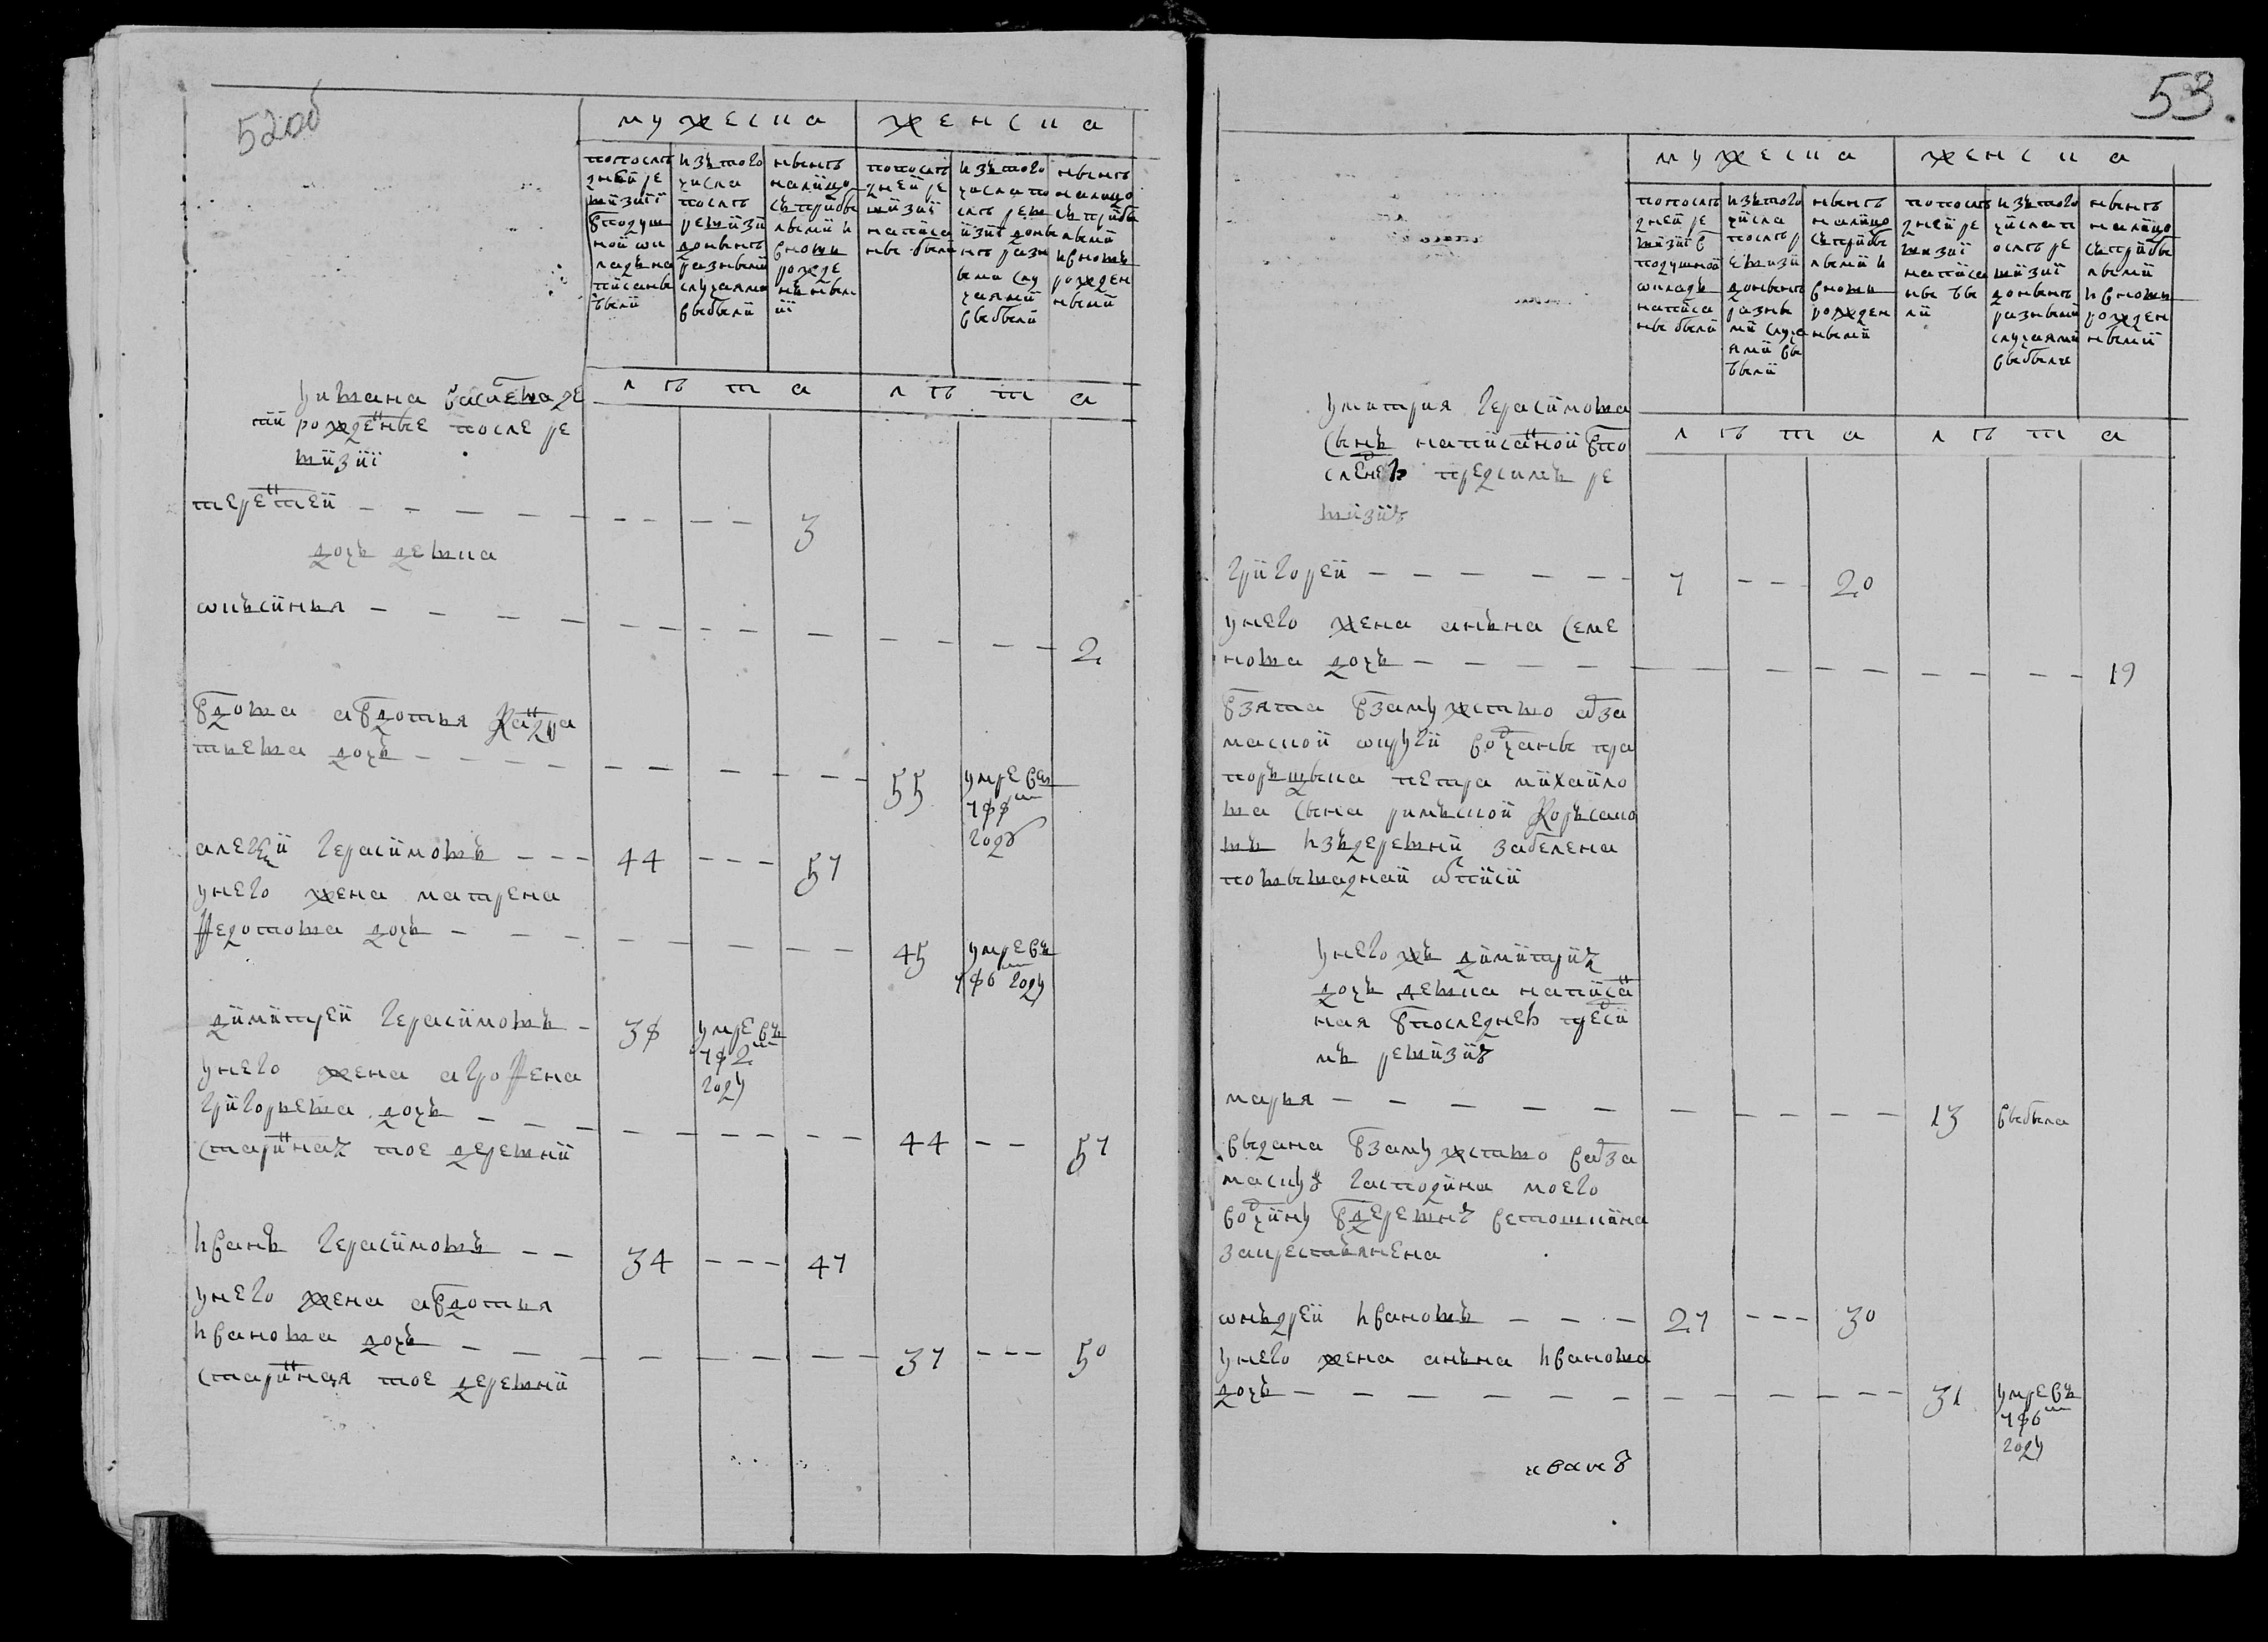 52об
мужеска
женска
попослѣ
дней ре
визїи
вподуш
ной ок
ладъ на
писаны
были
изътого
числа
послѣ
ревизи
доныне
разными
случаями
выбыли
нынѣ
налицо
съ прибы
лыми и
вновь
рожде
нъны
ми
попослѣ
дней ре
визиї
написа
ны были
изътого
числа по
слѣ рев
изиї доны
нѣ разн
ыми слу
чаями
выбыли
нынѣ
налицо
съ прибы
лыми
ивновь
рожден
ными
лѣта
лѣта
уивана васильева де
ти рожденые после ре
визиї
терентей - - - - 3
дочь девка
оксинья - - - - 2
вдова авдотья кандра
тьева дочь - - - - 55 умре въ
788м
году
алексѣй герасимовъ - - - 44 - - - 57
унего жена матрена
федотова дочь - - - 45 умре въ
786м году
димитрей герасимовъ - 38 умре въ
782м
году
унего жена агрофена
григорьева дочь - - - 44 - - 57
старинная тое деревни
иванъ герасимовъ - - 34 - - - 47
унего жена авдотья
иванова дочь - - - 37 - - - 50
старинная тое деревни
53.
мужеска
женска
попослѣ
дней ре
визиї в
подушной
окладъ
написа
ны были
изътого
числа
послѣ р
евизи
доныне
разны
ми случа
ями вы
были
нынѣ
налицо
съ прибы
лыми и
вновь
рожден
ными
попослѣ
дней ре
визиї
написа
ны бы
ли
изътого
числа п
ослѣ ре
визиї
доныне
разными
случаями
выбыли
нынѣ
налицо
съ прибы
лыми
ивновь
рожден
ными
лѣта
лѣта
умитрия герасимова
сынъ написаной впо
следнеѣ пред симъ ре
визиѣ
григорей - - - - 7 - - - 20
унего жена анъна семе
нова дочь - - - - 19
взята взамужство абза
маской округи вотчины пра
порщыка петра михайло
ва сына римъской корьсако
въ изъдеревни забелена
повывадной отписи
унего жъ димитриѣ
дочь девка написа
ная впоследнеѣ предси
мъ ревизиѣ
марья - - - - 13 выбыла
выдана взамужство вабза
маскую гасподина моего
вотчину вдеревнѣ
закрестьянена
онъдрей ивановъ - - - 27 - - - 30
унего жена анъна иванова
дочь - - - - 31 умре въ
786м
году
иванъ